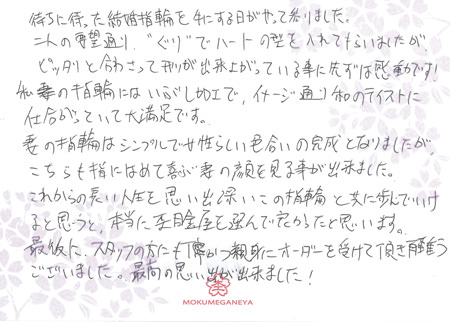 待ちに待った結婚指輪を手にする日がやって参りました。
二人の要望通り、"ぐり"でハートの型を入れてもらいましたが、
ピッタリと合わさって形が出来上がっている事に先ずは感動です！
私の指輪にはいぶし加工で、イメージ通り和のテイストに
仕上がっていて大満足です。
妻の指輪はシンプルで女性らしい色合いの完成となりましたが、
こちらも指にはめて喜ぶ妻の顔を見る事が出来ました。
これからの長い人生を思い出深いこの指輪と共に歩んでいけ
ると思うと、本当に杢目金屋を選んで良かったと思います。
最後に、スタッフの方にも丁寧かつ親身にオーダーを受けて頂き有難う
ございました。最高の思い出が出来ました！
MOKUMEGANEYA